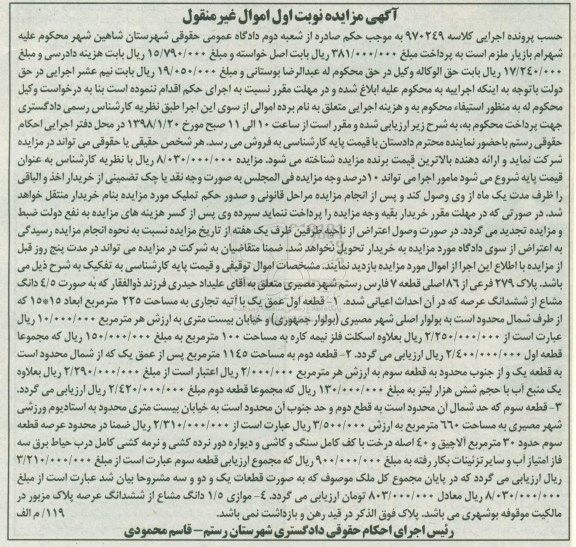 آگهی مزایده نوبت اول اموال غیرمنقول
حسب پرونده اجرایی کلاسه ۹۷۰۲۴۹ به موجب حکم صادره از شعبه دوم دادگاه عمومی حقوقی شهرستان شاهین شهر محکوم علیه
شهرام بازیار ملزم است به پرداخت مبلغ ۳۸۱/۰۰۰/۰۰۰ ریال بابت اصل خواسته و مبلغ ۱۵/۷۹۰/۰۰۰ ریال بابت هزینه دادرسی و مبلغ
۱۷/۲۴۰/۰۰۰ ریال بابت حق الوکاله وکیل در حق محکوم له عبدالرضا بوستانی و مبلغ ۱۹/۰۵۰/۰۰۰ ریال بابت نیم عشر اجرایی در حق
دولت باتوجه به اینکه اجراییه به محکوم علیه ابلاغ شده و در مهلت مقرر نسبت به اجرای حکم اقدام ننموده است بنا به درخواست وکیل
محکوم له به منظور استیفاء محکوم به و هزینه اجرایی متعلق به نام برده اموالی از سوی این اجرا طبق نظریه کارشناس رسمی دادگستری
جهت پرداخت محکوم به، به شرح زیر ارزیابی شده و مقرر است از ساعت ۱۰ الی ۱۱ صبح مورخ ۱۳۹۸/۱/۲۰ در محل دفتر اجرایی احکام
حقوقی رستم باحضور نماینده محترم دادستان با قیمت پایه کارشناسی به فروش می رسد. هر شخص حقیقی یا حقوقی می تواند در مزایده
شرکت نماید و ارائه دهنده بالاترین قیمت برنده مزایده شناخته می شود. مزایده ۸/۰۳۰/۰۰۰/۰۰۰ ریال با نظریه کارشناس به عنوان
قیمت پایه شروع می شود مامور اجرا می تواند ۱۰درصد وجه مزایده فی المجلس به صورت وجه نقد یا چک تضمینی از خریدار اخذ و الباقی
را ظرف مدت یک ماه از وی وصول کند و پس از انجام مزایده مراحل قانونی و صدور حکم تملیک مورد مزایده بنام خریدار منتقل خواهد
شد. در صورتی که در مهلت مقرر خریدار بقیه وجه مزایده را پرداخت ننماید سپرده وی پس از کسر هزینه های مزایده به نفع دولت ضبط
و مزایده تجدید می گردد. در صورت وصول اعتراض از ناحیه طرفین ظرف یک هفته از تاریخ مزایده نسبت به نحوه انجام مزایده رسیدگی
به اعتراض از سوی دادگاه مورد مزایده به خریدار تحویل نخواهد شد. ضمنا متقاضیان به شرکت در مزایده می تواند در مدت پنج روز قبل
از مزایده با اطلاع این اجرا از اموال مورد مزایده بازدید نمایند. مشخصات اموال توقیفی و قیمت پایه کارشناسی به تفکیک به شرح ذیل می
باشد. پلاک ۲۷۹ فرعی از ۸۶ اصلی قطعه ۷ فارس رستم شهر مصیری متعلق به آقای علیداد حیدری فرزند ذوالفقار که به صورت ۴/۵ دانگ
مشاع از ششدانگ عرصه که در آن احداث اعیانی شده. ۱- قطعه اول عمق یک با آتیه تجاری به مساحت ۲۲۵ مترمربع ابعاد ۱۵*۱۵ که
از طرف شمال محدود است به بولوار اصلی شهر مصیری (بولوار جمهوری) و خیابان بیست متری به ارزش هر مترمربع ۱۰/۰۰۰/۰۰۰ ریال
عبارت است از ۲/۲۵۰/۰۰۰/۰۰۰ ریال بعلاوه اسکلت فلز نیمه کاره به مساحت ۱۰۰ مترمربع به مبلغ ۱۵۰/۰۰۰/۰۰۰ ریال که مجموعا
قطعه اول ۲/۴۰۰/۰۰۰/۰۰۰ ریال ارزیابی می گردد. ۲- قطعه دوم به مساحت ۱۱۴۵ مترمربع پس از عمق یک که از شمال محدود است
به قطعه یک و از جنوب محدود به قطعه سوم به ارزش هر مترمربع ۲/۰۰۰/۰۰۰ ریال اعتبار است از مبلغ ۲/۲۹۰/۰۰۰/۰۰۰ ریال بعلاوه
یک منبع آب با حجم شش هزار لیتر به مبلغ ۱۳۰/۰۰۰/۰۰۰ ریال که مجموعا قطعه دوم مبلغ ۲/۴۲۰/۰۰۰/۰۰۰ ریال ارزیابی می گردد.
۳- قطعه سوم که حد شمال آن محدود است به قطع دوم و حد جنوب آن محدود است به خیابان بیست متری محدود به استادیوم ورزشی
شهر مصیری به مساحت ۶۶۰ مترمربع به ارزش ۳/۵۰۰/۰۰۰ ریال عبارت است از ۲/۳۱۰/۰۰۰/۰۰۰ ریال ضمنا در محدوده عرصه قطعه
سوم حدود ۳۰ مترمربع آلاچیق و ۴۰ اصله درخت با کف کامل سنگ و کاشی و دیواره دور نرده کشی و نرمه کشی کامل درب حیاط برق سه
فاز امتیاز آب و سایر تزئینات بکار رفته به مبلغ ۹۰۰/۰۰۰/۰۰۰ ریال که مجموع ارزیابی قطعه سوم عبارت است از مبلغ ۳/۲۱۰/۰۰۰/۰۰۰
ریال ارزیابی می گردد که در پایان مجموع کل ملک موصوف که به صورت قطعات یک و دو و سه مشروحا بیان شد عبارت است از مبلغ
۸/۰۳۰/۰۰۰/۰۰۰ ریال معادل ۸۰۳/۰۰۰/۰۰۰ تومان ارزیابی می گردد. ۴- موازی ۱/۵ دانگ مشاع از ششدانگ عرصه پلاک مزبور در
مالکیت موقوفه بوشهری می باشد. پلاک فوق الذکر در قید رهن و بازداشت نمی باشد. ۱۱۹/ م الف
رئیس اجرای احکام حقوقی دادگستری شهرستان رستم- قاسم محمودی